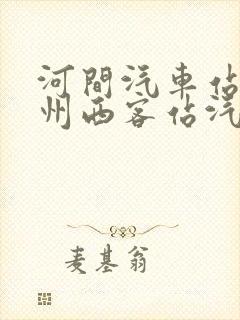 河間汽車佔
州西客佔汽
麦基翁